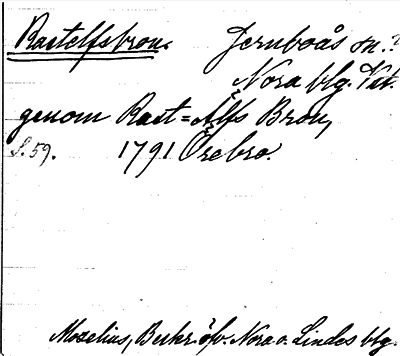 Rastelfsbron. Jernboås sn.?
Nora blg. Vat.
genom Rast=Älfs Bron,
S. 59. 1791 Örebro.
Moselius, Beskr. öfv. Nora o. Lindes blg.